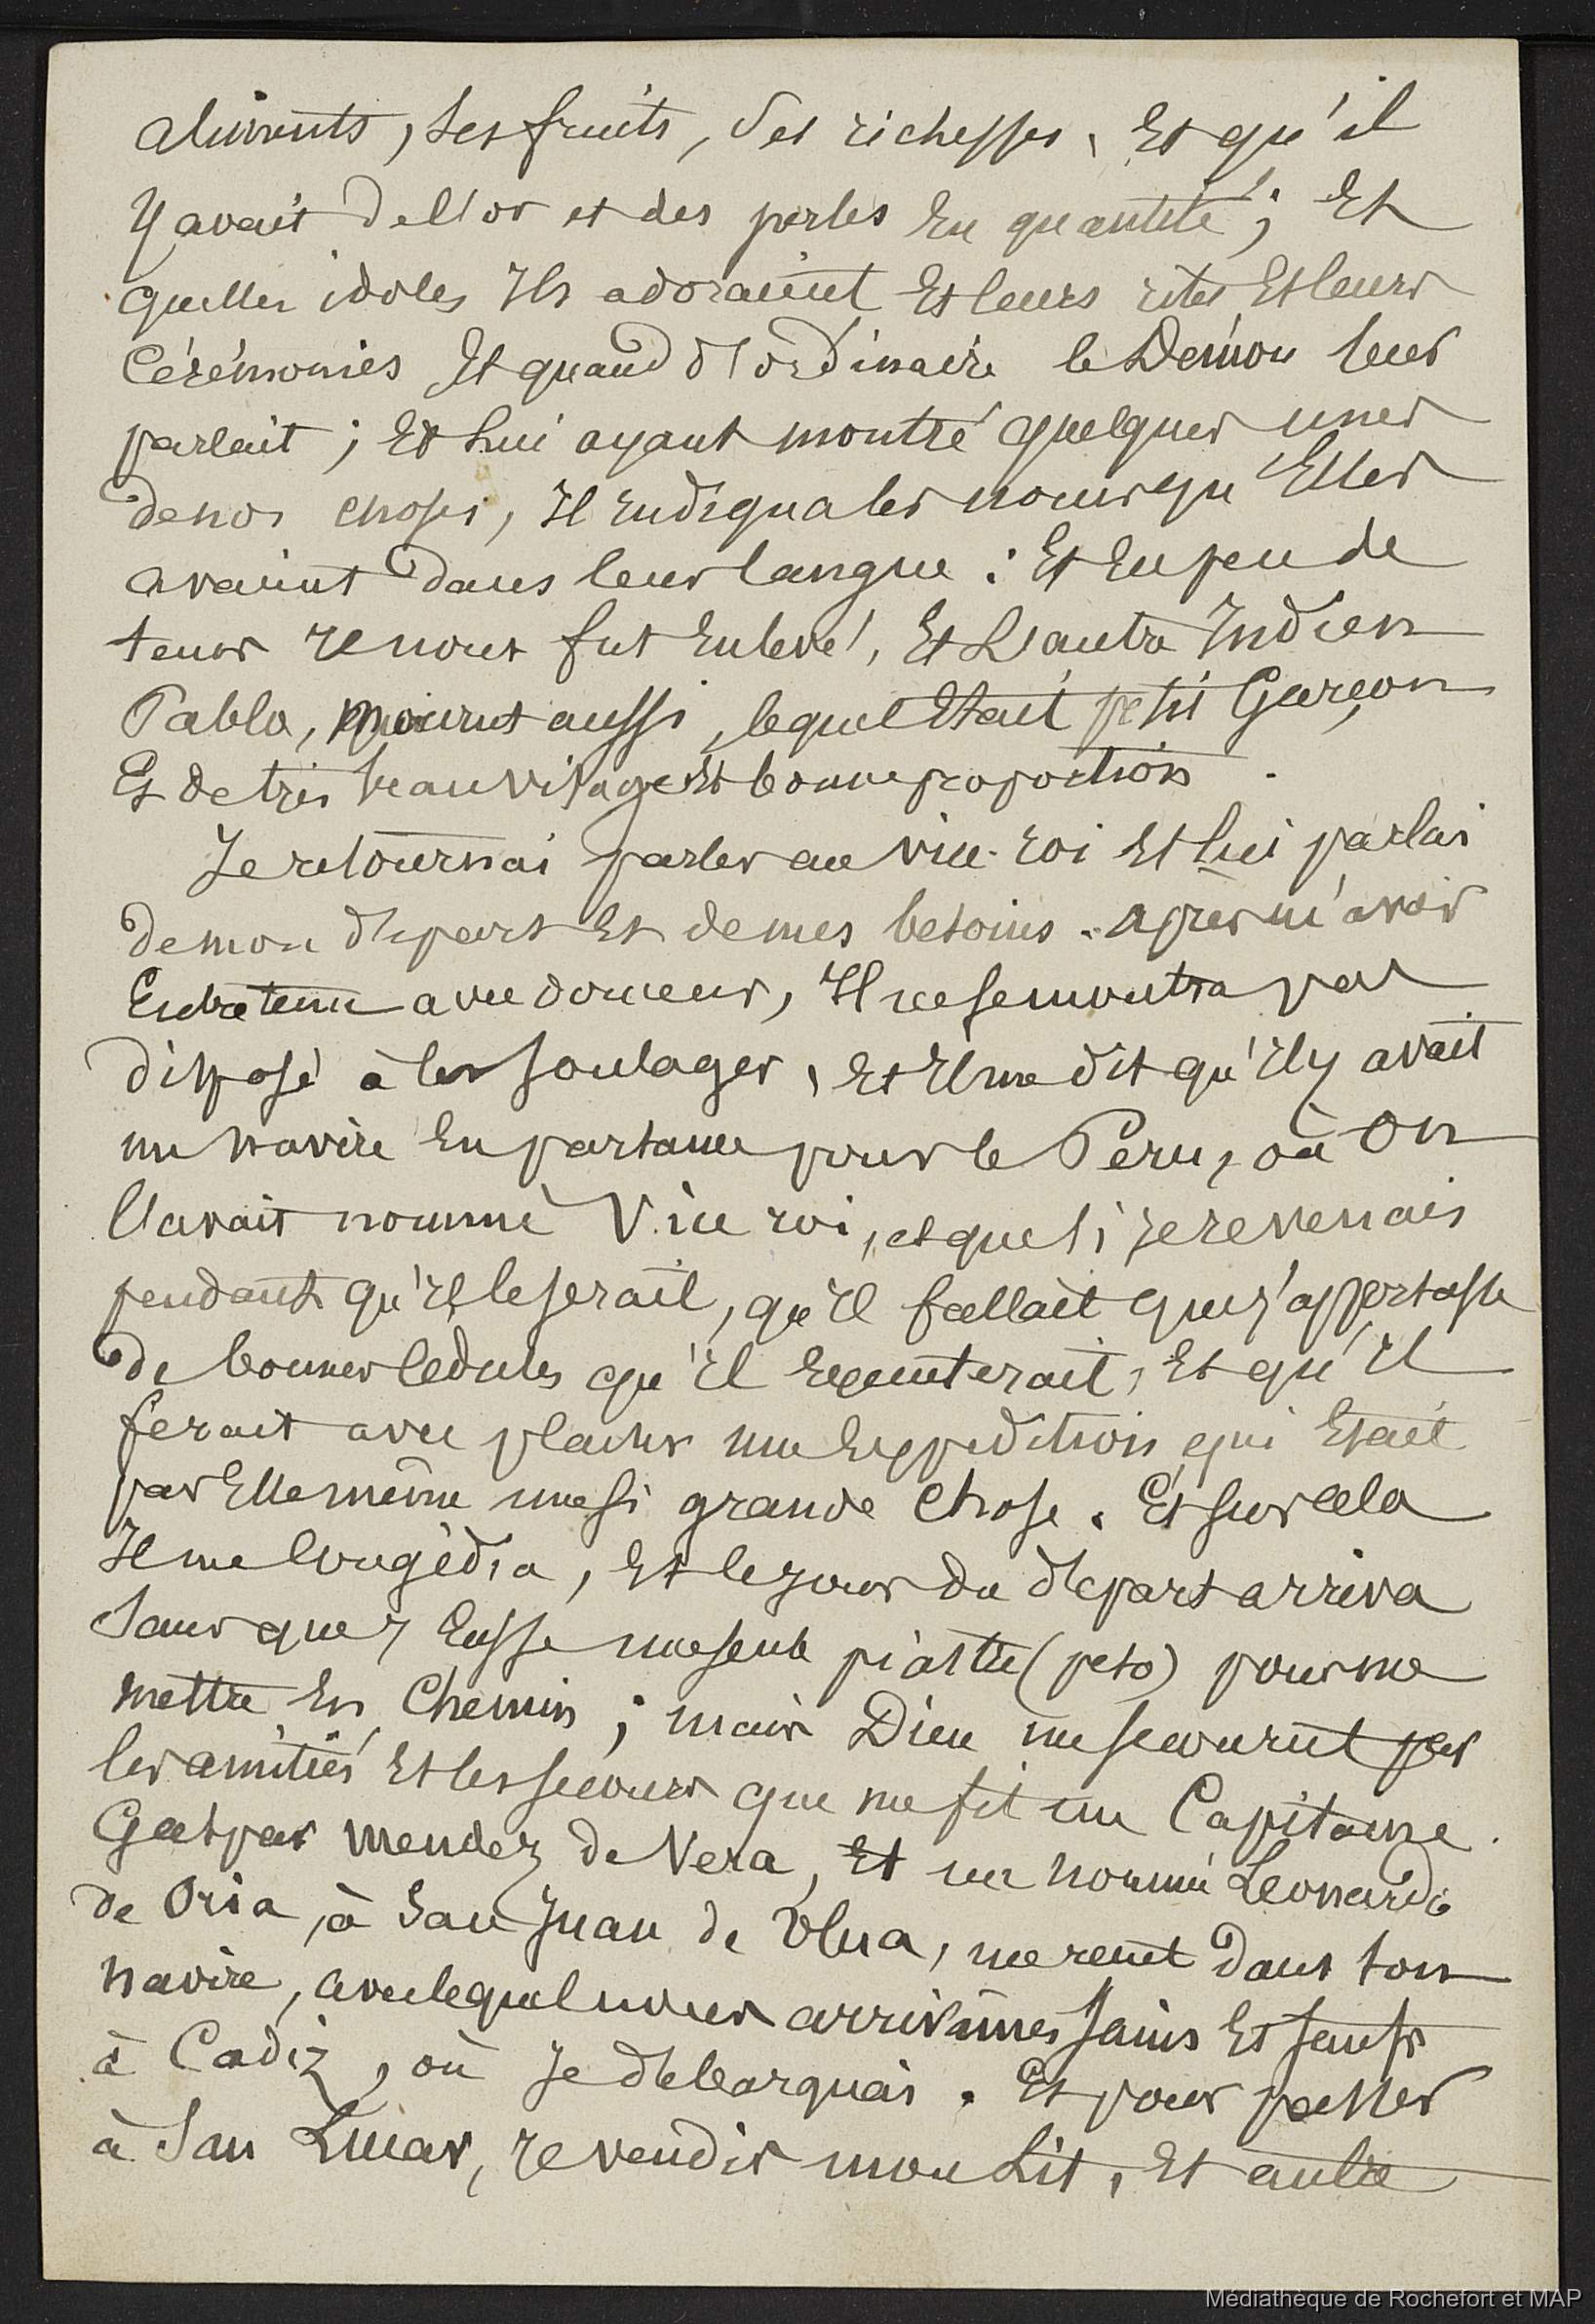 aliments, ses fruits, ses richesses, Et qu'il
y avait de l'or et des perles En quantité; Et
quelles idoles Ils adoraient Et leurs rites Et leurs
Cérémonies Et quand d'ordinaire le Démon leur
parlait; Et Lui ayant montré quelques unes
de nos choses, Il Indiqua les noms qu'Elles
avaient dans leur langue: Et En peu de
tems Il nous fut Enlevé, Et L'autre Indien
Pablo, mourut aussi, lequel Etait petit Garçon
Et de très beau visage Et bonne proportion.
Je retournai parler au vice-roi Et lui parlai
de mon départ Et de mes besoins. après m'avoir
Entretenu avec douceur, Il ne se montra pas
disposé à les soulager, Et Il me dit qu'Il y avait
un navire En partance pour le Péru, où On
l'avait nommé Vice roi, et que si Je revenais
pendant qu'Il le serait, qu'Il fallait que j'apportasse
de bonnes Cédules qu'Il Exécuterait, Et qu'Il
ferait avec plaisir une Expédition qui Etait
par Elle même une si grande Chose. Et sur cela
Il me Congédia, Et le Jour du départ arriva
sans que j'Eusse une seule piastre (peso) pour me
mettre En Chemin; mais Dieu me secourut par
les amitiés Et les secours que me fit un Capitaine
Gaspar Mendez de Vera, Et un nommé Leonardo
de Oria, à San Juan de Ulua, me reçut Dans son
navire, avec lequel nous arrivâmes Sains Et saufs
à Cadiz, où Je débarquai. Et pour passer
à San Lucar, Je vendis mon Lit, Et autre
Médiathèque de Rochefort et MAP